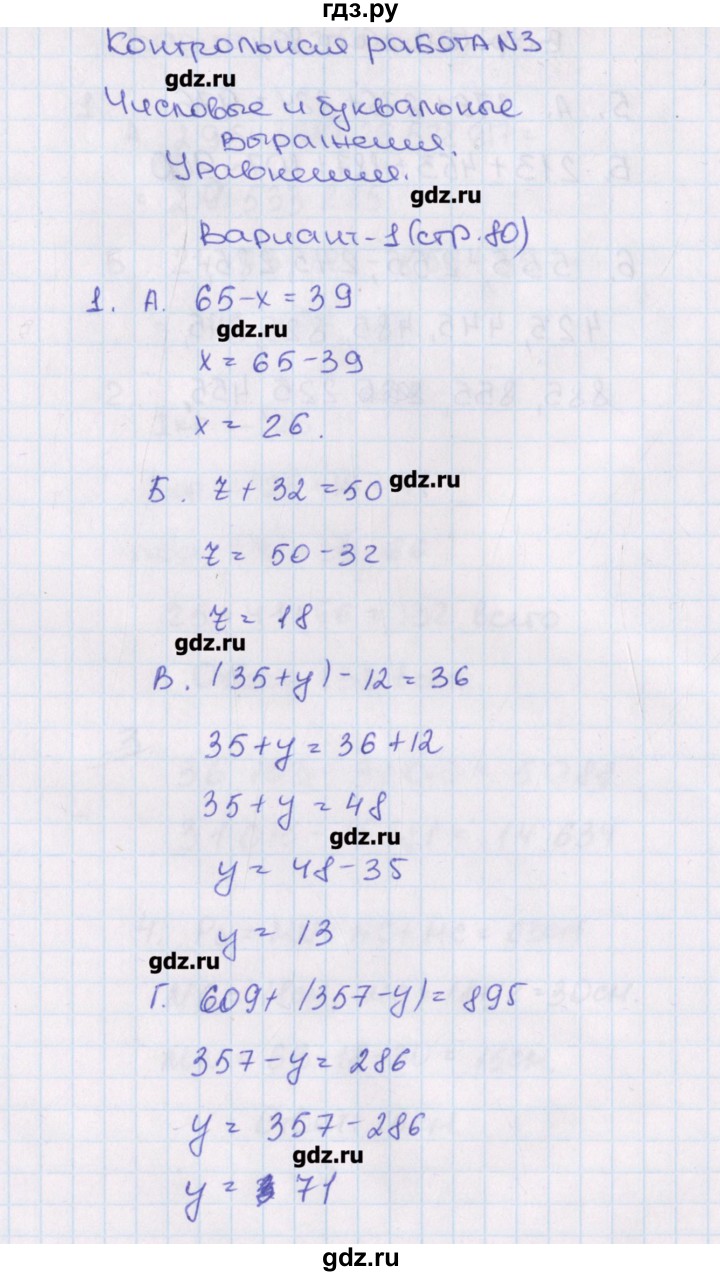 гдз.ру
Контрольная работа N3
gdz.ru
Числовые и буквальные
выражения.
Уравнения.
gdz.ru
Вариант-1 (стр.80)
1. А. 65-x=39
gdz.ru
x=65-39
x= 26.
Б. z+32=50
gdz.ru
z=50-32
z=18
gdz.ru
В. (35+y)-12=36
35+y=36+12
35+y=48
gdz.ru
y=48-35
y=13
gdz.ru
Г. 609+(357-y)=895
357-y=286
y=357-286
gdz.ru
y= 71
gdz.ru